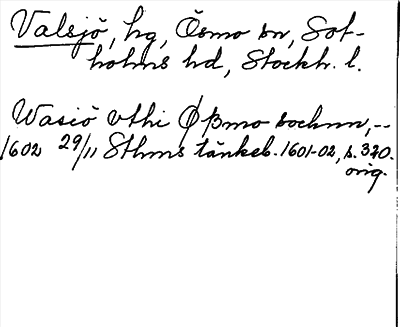 Valsjö, hg, Ösmo sn, Sot-
holms hd, Stockh. l.
Wasiö vthi Øßmo sochnn, --
1602 29/11 Sthms tänkeb. 1601-02, s. 320.
orig.